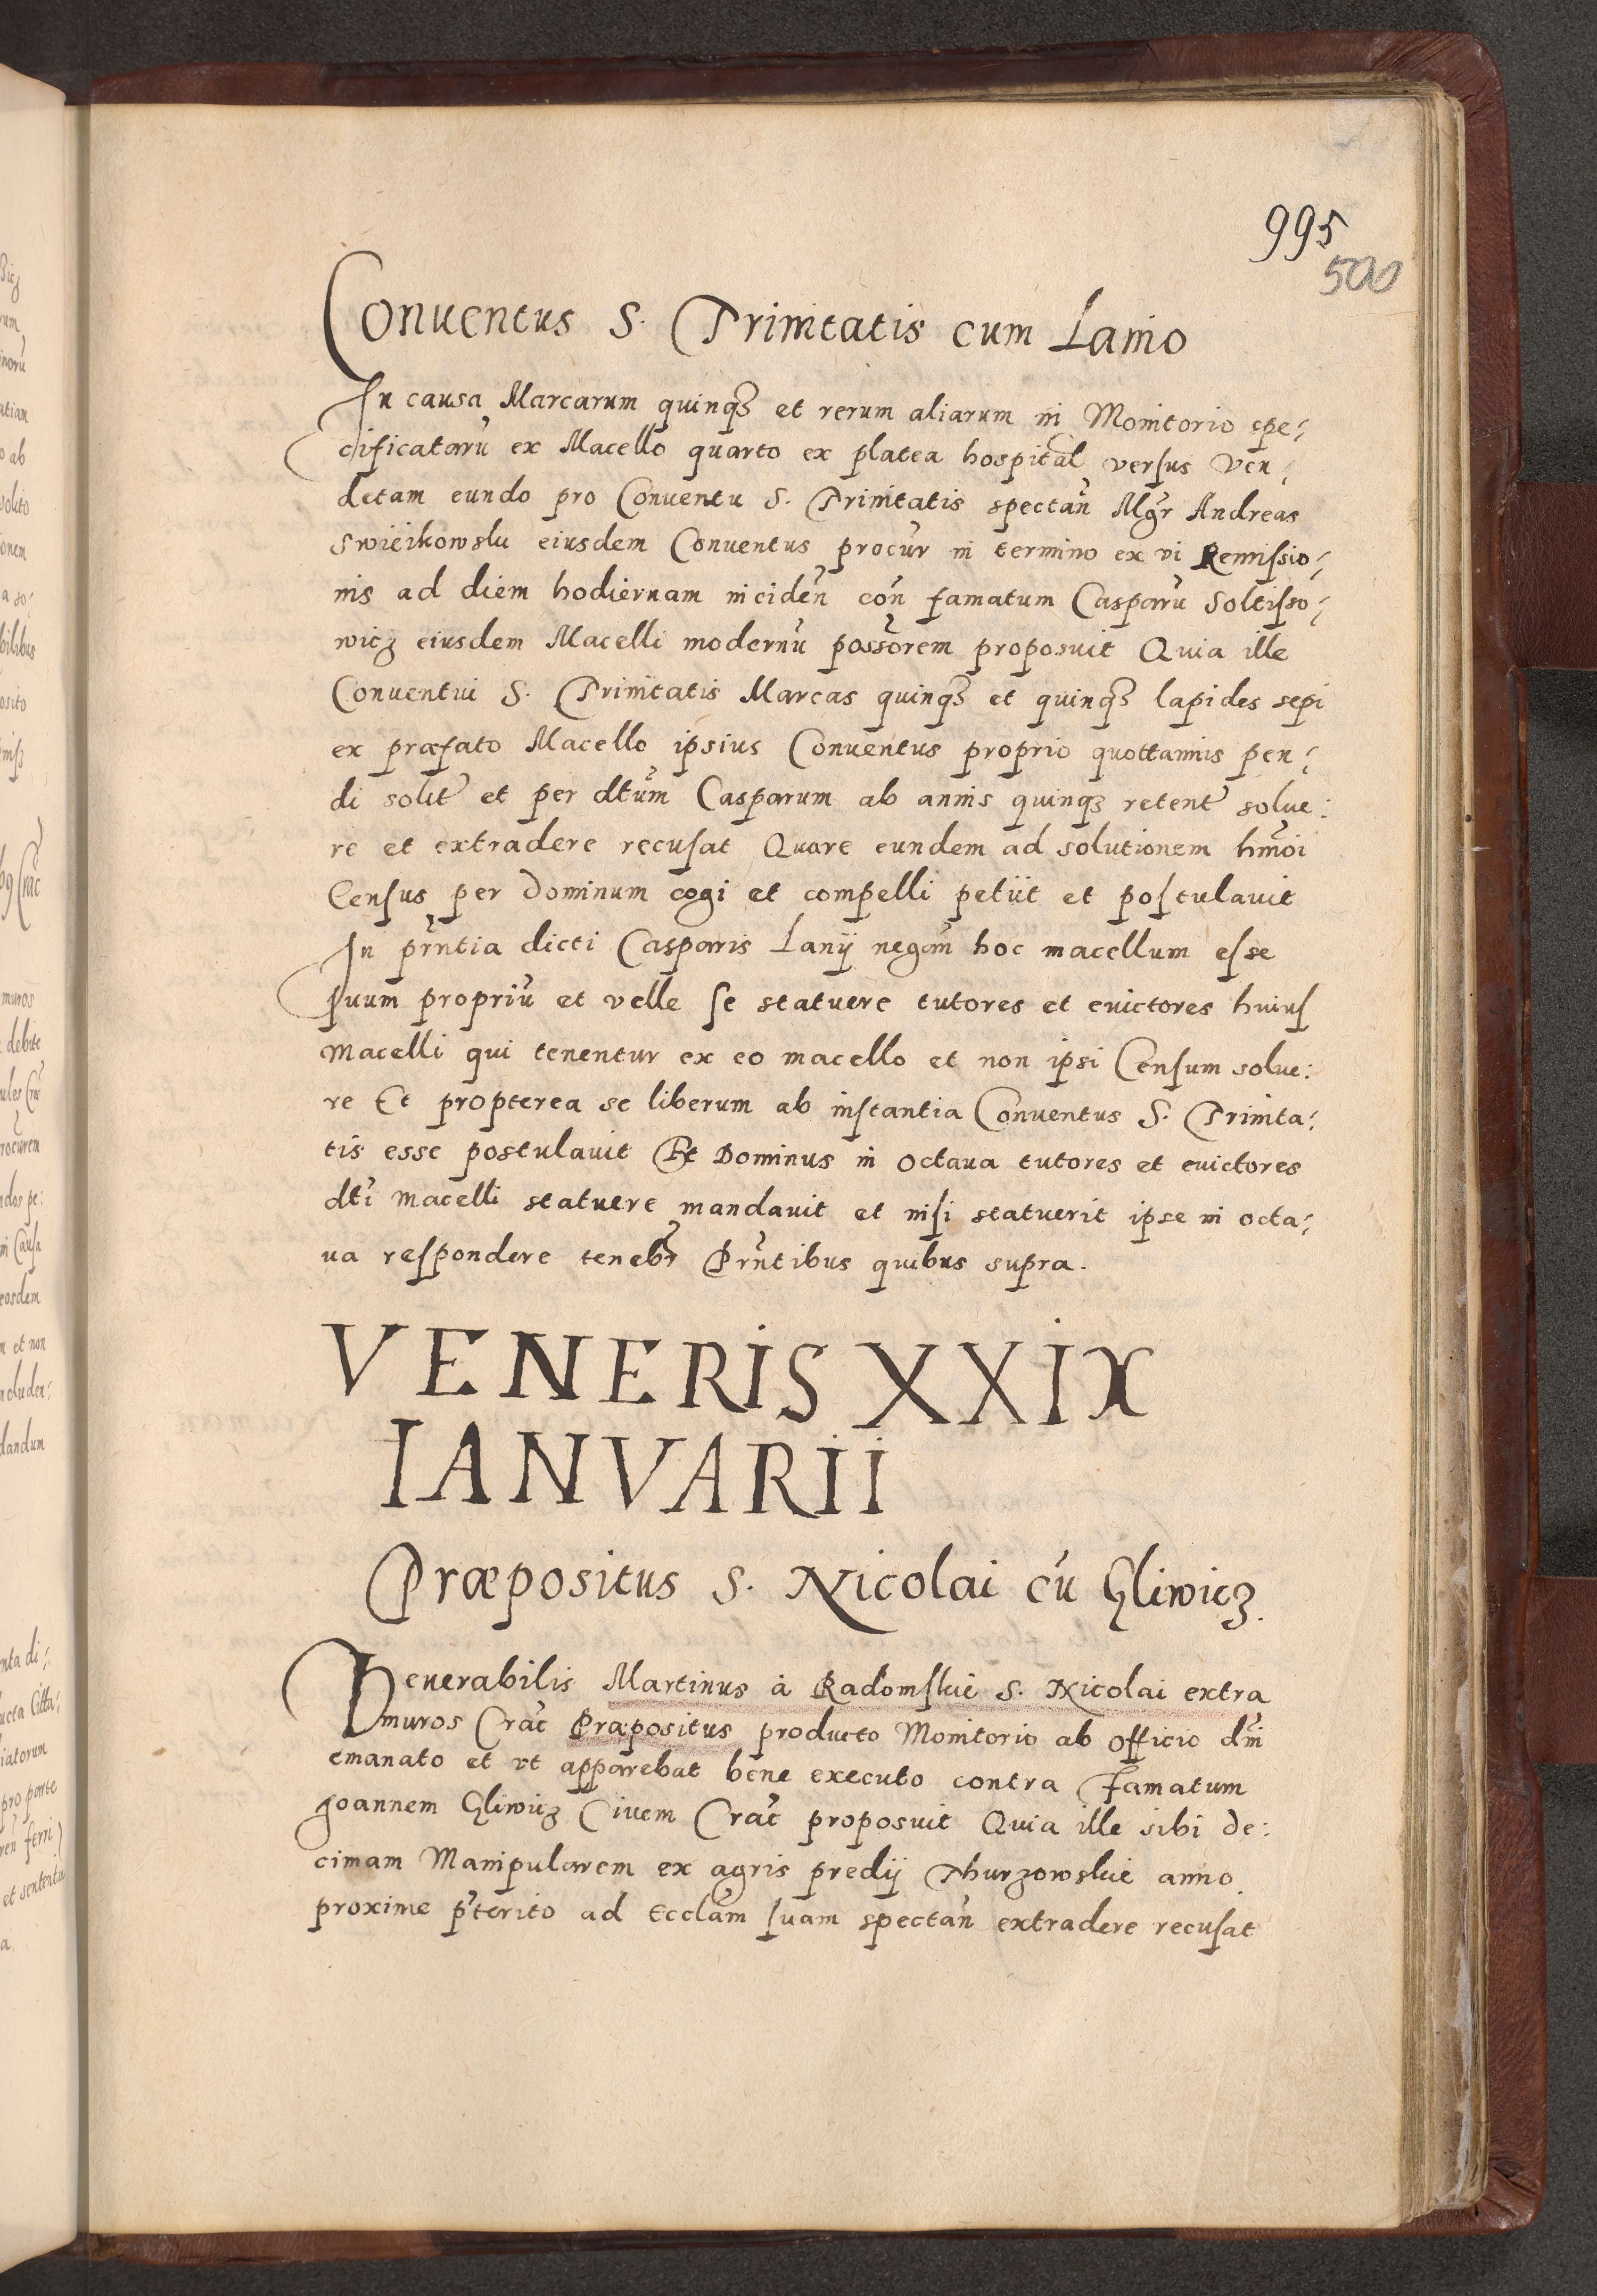 995
500
Conuentus S. Trinitatis cum Lanio
In causa Marcarum quinq3 et rerum aliarum in Monitorio spe:
cificatarū ex Macello quarto ex platea hospital versus Ven:
detam eundo pro Conuentu S. Trinitatis spectan̄ Mgr̄ Andreas
Swiëikowsku eiusdem Conuentus procur̄ in termino ex vi Remiſsio:
nis ad diem hodiernam inciden̄ con̄ famatum Casparū Soltiſso:
wicz eiusdem Macelli modernū possorem proposuit Quia ille
Conuentui S. Trinitatis Marcas quinq3 et quinq3 lapides sepi
ex præfato Macello ipsius Conuentus proprio quottannis pen:
di solit et per dtūm Casparum ab annis quinq3 retent solue:
re et extradere recuſat Quare eundem ad solutionem hmōi
Cenſus per Dominum cogi et compelli petiit et poſtulauit
In prn̄tia dicti Casparis Lanij negan̄ hoc macellum eſse
ſuum propriū et velle ſe statuere tutores et euictores huiuſ
Macelli qui tenentur ex eo macello et non ipsi Cenſum solue:
re Et propterea se liberum ab inſtantia Conuentus S. Trinita:
tis esse postulauit Et Dominus in octaua tutores et euictores
dti macelli statuere mandauit et niſi statuerit ipse in octa:
ua reſpondere tenebr Prn̄tibus quibus supra.
VENERIS XXIX
IANVARII
Præpositus S. Nicolai cū Gliwicz.
Venerabilis Martinus à Radomſkie S. Nicolai extra
muros Crac̄ Præpositus producto Monitorio ab officio dn̄i
emanato et vt apparebat bene executo contra Famatum
Joannem Gliwicz Ciuem Crac̄ proposuit Quia ille sibi de:
cimam Manipularem ex agris predij Thurzowskie anno
proxime p̄terito ad Eccl̄am ſuam spectan̄ extradere recuſat